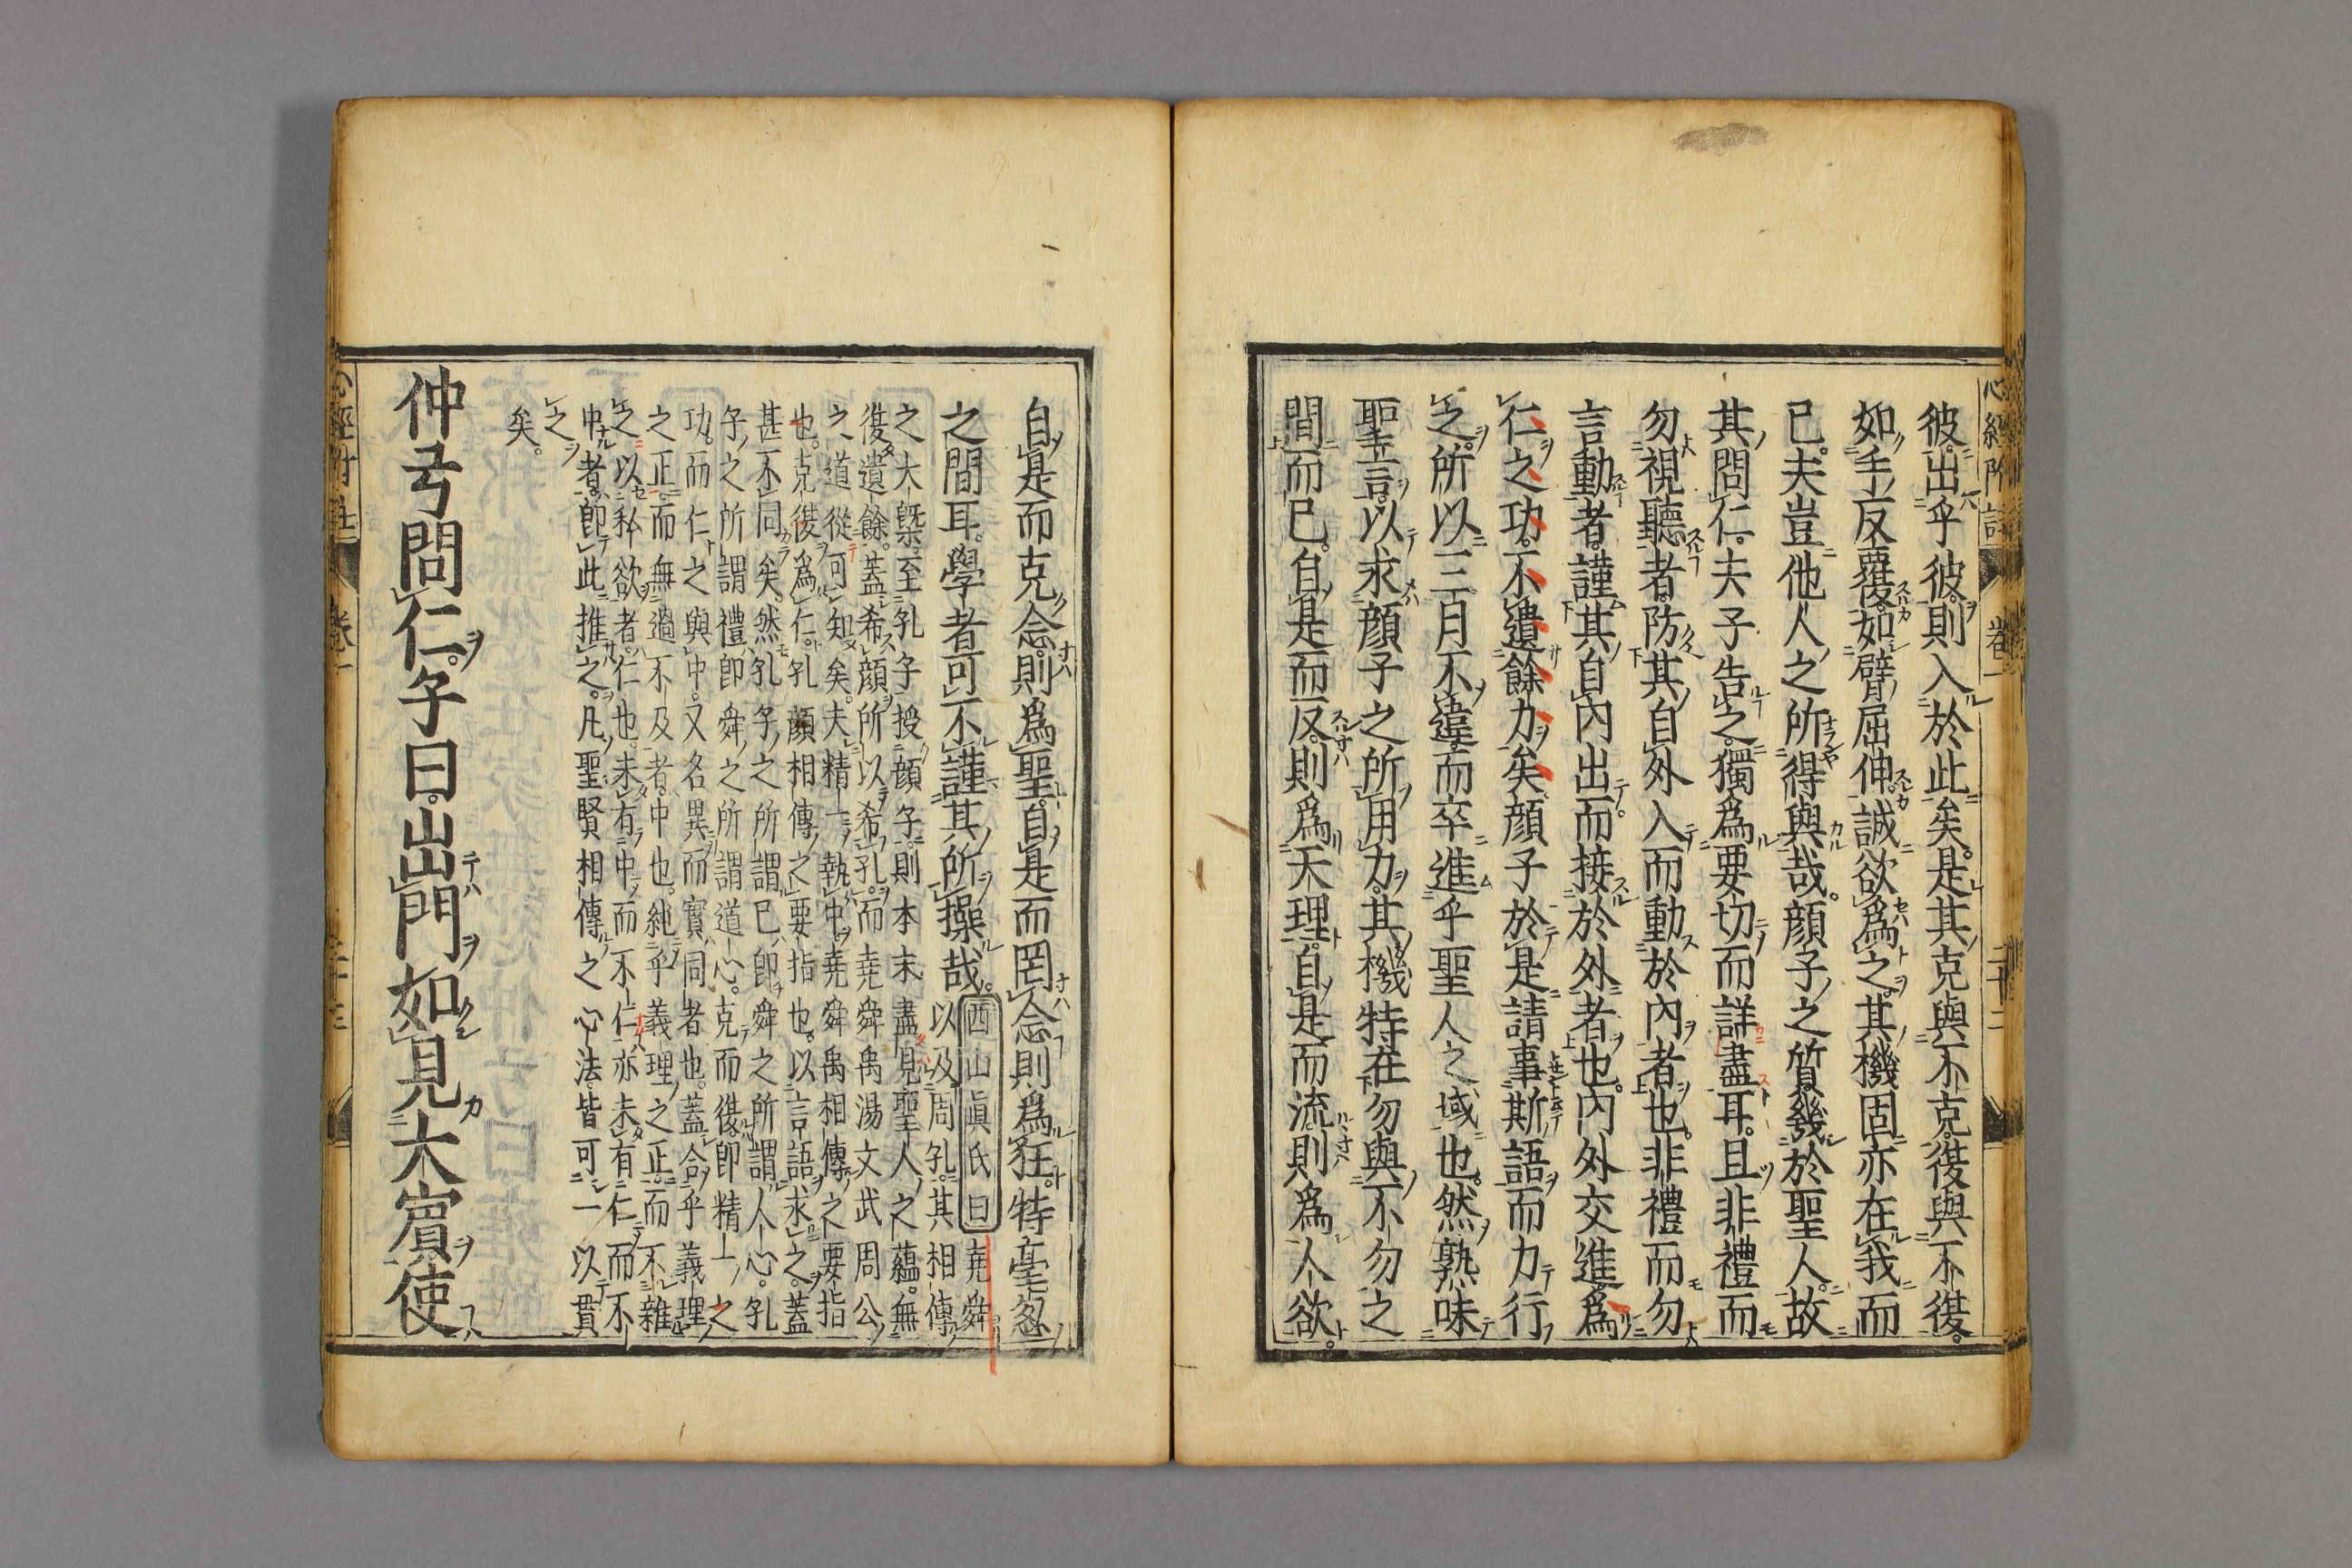 心經附註 卷一 二十二
彼出乎彼則入於此矣是其克與不克復與不復
如手反覆如臂屈伸誠欲爲之其機固亦在我而
已夫豈他人之所得與哉顔子之質幾於聖人故
其問仁夫子告之獨爲要切而詳盡耳且非禮而
勿視聽者防其自外入而動於內者也非禮而勿
言動者謹其自內出而接於外者也內外交進爲
仁之功不遺餘力矣顔子於是請事斯語而力行
之所以三月不違而卒進乎聖人之域也然熟味
聖言以求顔子之所用力其機特在勿與不勿之
間而已自是而反則爲天理自是而流則爲人欲
自是而克念則爲聖自是而罔念則爲狂特毫忽
之間耳學者可不謹其所操哉西山眞氏曰堯舜
以及周孔其相傳
之大槩至孔子授顔子則本末盡見聖人之蘊無
復遺餘蓋希顔所以希孔而堯舜禹湯文武周公
之道從可知矣夫精一執中堯舜禹相傳之要指
也克復爲仁孔顔相傳之要指也以言語求之蓋
甚不同矣然孔子之所謂己卽舜之所謂人心孔
子之所謂禮卽舜之所謂道心克而復卽精一之
功而仁之與中又名異而實同者也蓋合乎義理
之正而無過不及者中也純乎義理之正而不雜
之以私欲者仁也未有中而不仁亦未有仁而不
中者卽此推之凡聖賢相傳之心法皆可一以貫
之
矣
仲弓問仁子曰出門如見大賓使